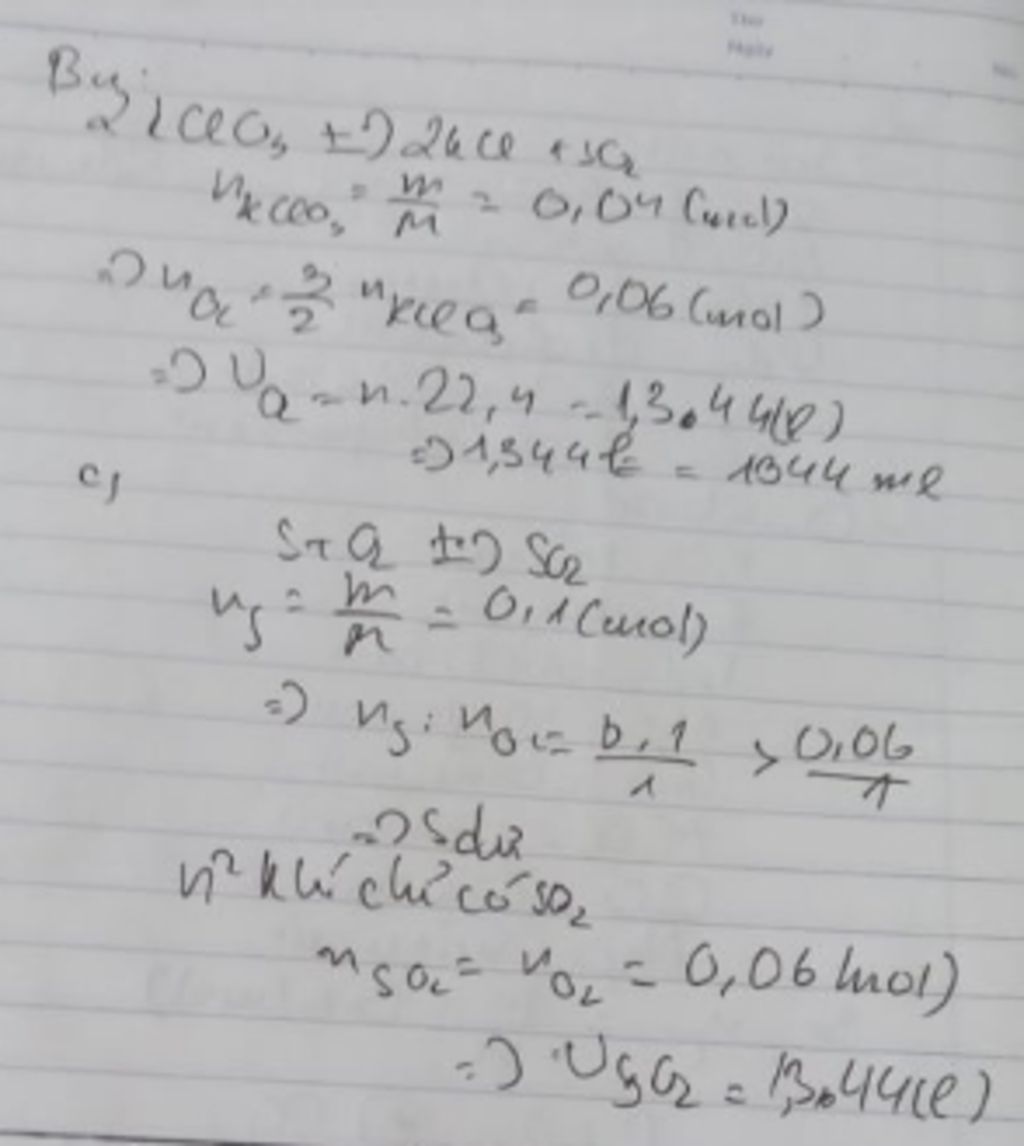 Thứ
Ngày
No.
2KClO₃ t°→ 2KCl + 3O₂
n_KClO₃ = m/M = 0,04 (mol)
=> n_O₂ = 3/2 n_KClO₃ = 0,06 (mol)
=> V_O₂ = n.22,4 = 1,344(l)
=> 1,344 l = 1344 ml
c,
S + O₂ t°→ SO₂
n_S = m/M = 0,1 (mol)
=> n_S : n_O₂ = 0,1/1 > 0,06/1
=> S dư
n² khí chỉ có SO₂
n_SO₂ = n_O₂ = 0,06 (mol)
=> V_SO₂ = 1,344(l)